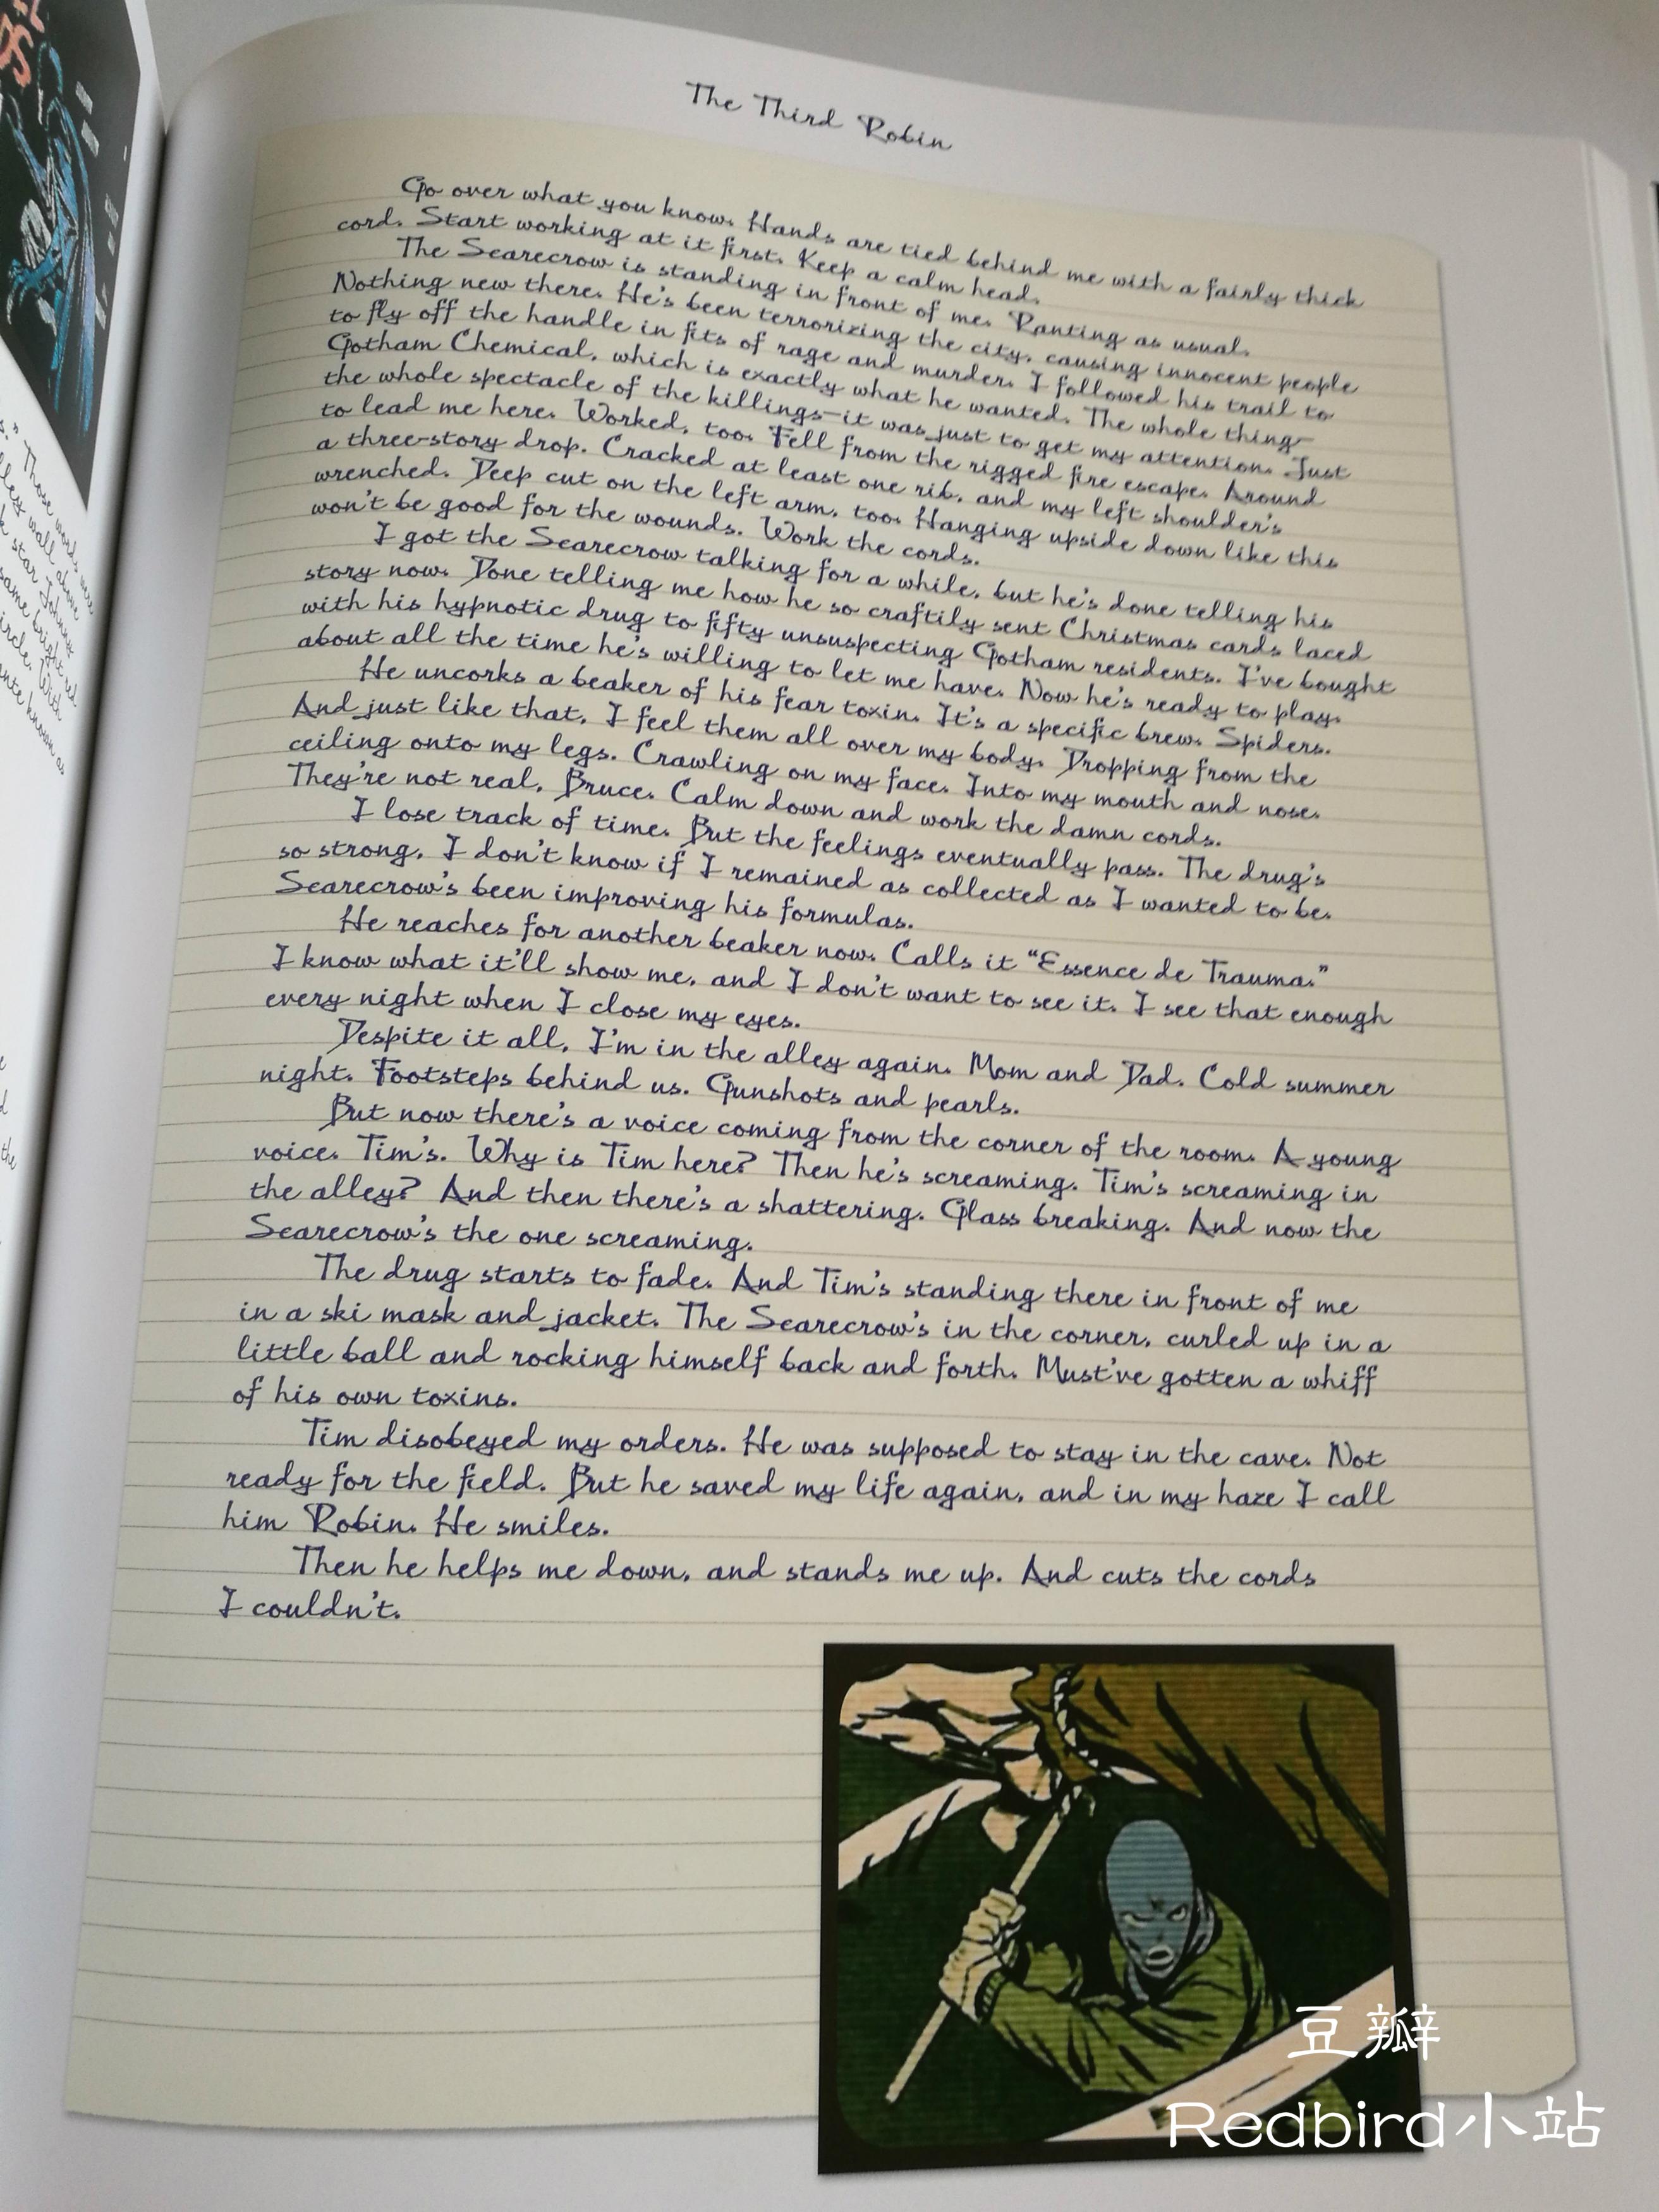 The Third Robin
Go over what you know. Hands are tied behind me with a fairly thick
cord. Start working at it first. Keep a calm head.
The Scarecrow is standing in front of me. Ranting as usual.
Nothing new there. He's been terrorizing the city, causing innocent people
to fly off the handle in fits of rage and murder. I followed his trail to
Gotham Chemical, which is exactly what he wanted. The whole thing—
the whole spectacle of the killings—it was just to get my attention. Just
to lead me here. Worked, too. Fell from the rigged fire escape. Around
a three-story drop. Cracked at least one rib, and my left shoulder's
wrenched. Deep cut on the left arm, too. Hanging upside down like this
won't be good for the wounds. Work the cords.
I got the Scarecrow talking for a while, but he's done telling his
story now. Done telling me how he so craftily sent Christmas cards laced
with his hypnotic drug to fifty unsuspecting Gotham residents. I've bought
about all the time he's willing to let me have. Now he's ready to play.
He uncorks a beaker of his fear toxin. It's a specific brew. Spiders.
And just like that, I feel them all over my body. Dropping from the
ceiling onto my legs. Crawling on my face. Into my mouth and nose.
They're not real, Bruce. Calm down and work the damn cords.
I lose track of time. But the feelings eventually pass. The drug's
so strong, I don't know if I remained as collected as I wanted to be.
Scarecrow's been improving his formulas.
He reaches for another beaker now. Calls it “Essence de Trauma.”
I know what it'll show me, and I don't want to see it. I see that enough
every night when I close my eyes.
Despite it all, I'm in the alley again. Mom and Dad. Cold summer
night. Footsteps behind us. Gunshots and pearls.
But now there's a voice coming from the corner of the room. A young
voice. Tim's. Why is Tim here? Then he's screaming. Tim's screaming in
the alley? And then there's a shattering. Glass breaking. And now the
Scarecrow's the one screaming.
The drug starts to fade. And Tim's standing there in front of me
in a ski mask and jacket. The Scarecrow's in the corner, curled up in a
little ball and rocking himself back and forth. Must've gotten a whiff
of his own toxins.
Tim disobeyed my orders. He was supposed to stay in the cave. Not
ready for the field. But he saved my life again, and in my haze I call
him Robin. He smiles.
Then he helps me down, and stands me up. And cuts the cords
I couldn't.
豆瓣
Redbird小站